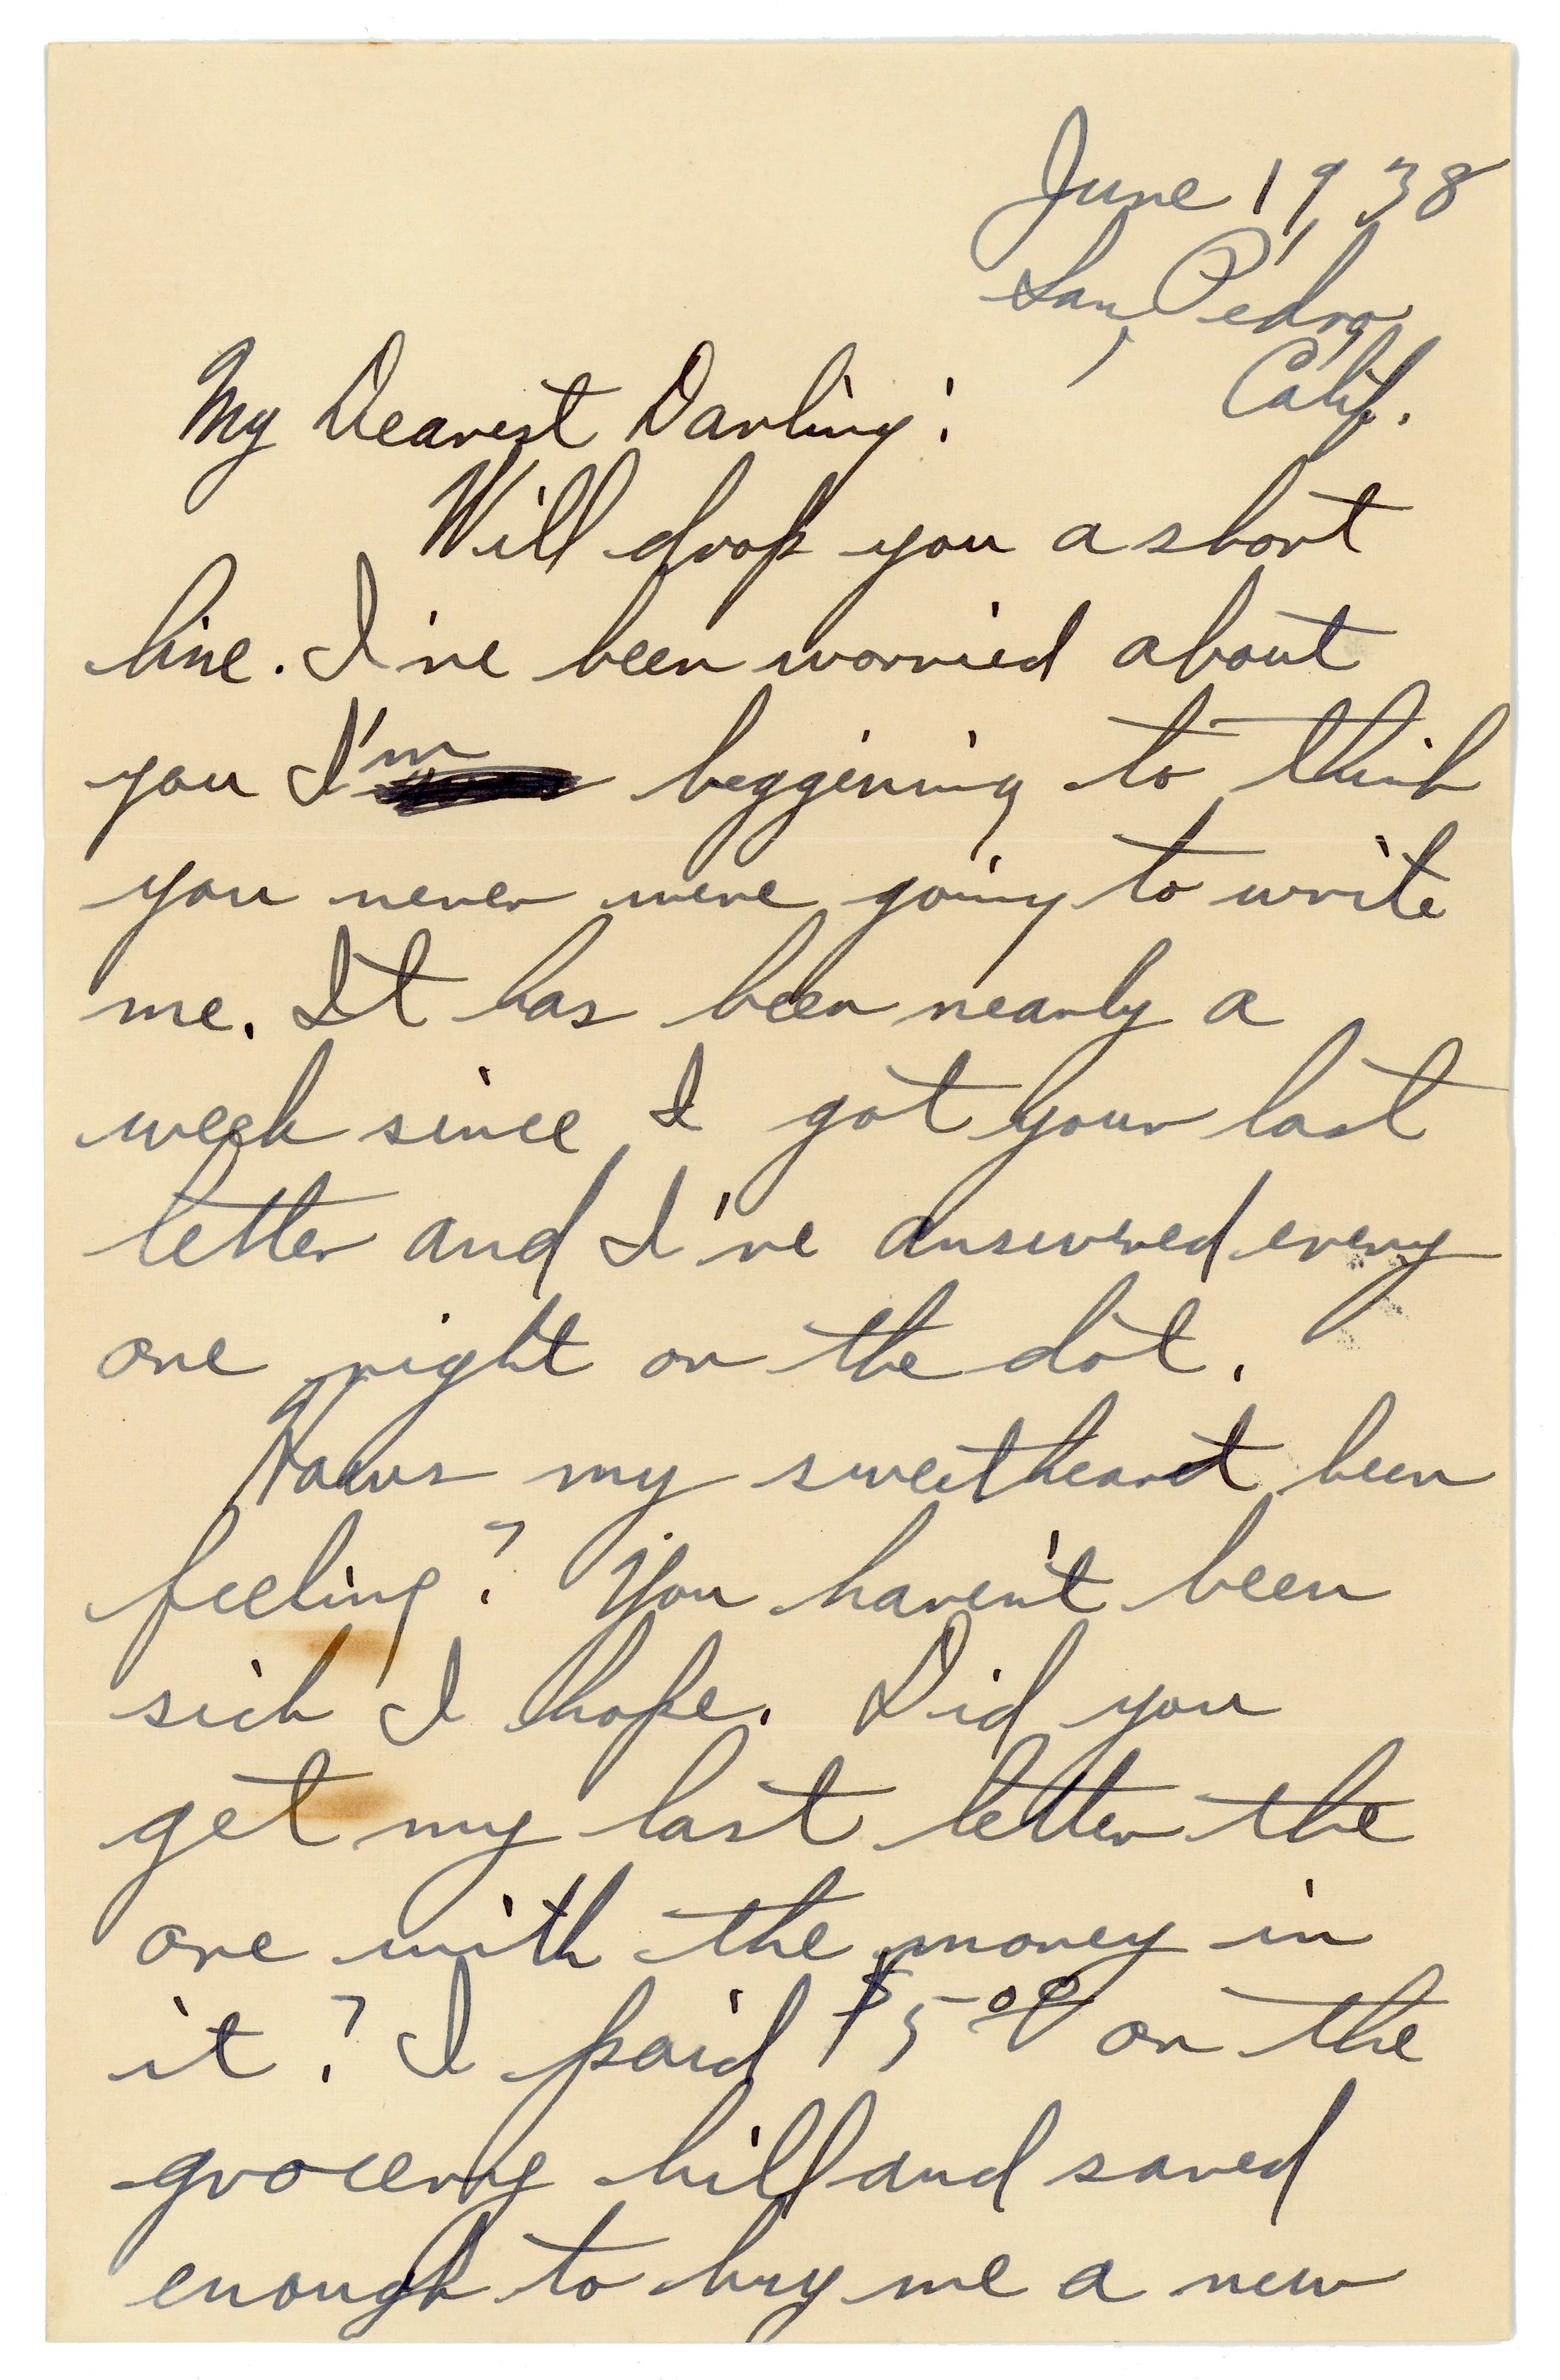 June 1, 938
San Pedro,
Calif.
My Dearest Darling:
Will drop you a short
line. I've been worried about
you I'm beggining to think
you never were going to write
me. It has been nearly a
week since I got your last
letter and I've answered every
one right on the dot.
Hows my sweetheart been
feeling? You haven't been
sick I hope. Did you
get my last letter the
one with the money in
it? I paid $5.00 on the
grocery bill and saved
enough to buy me a new